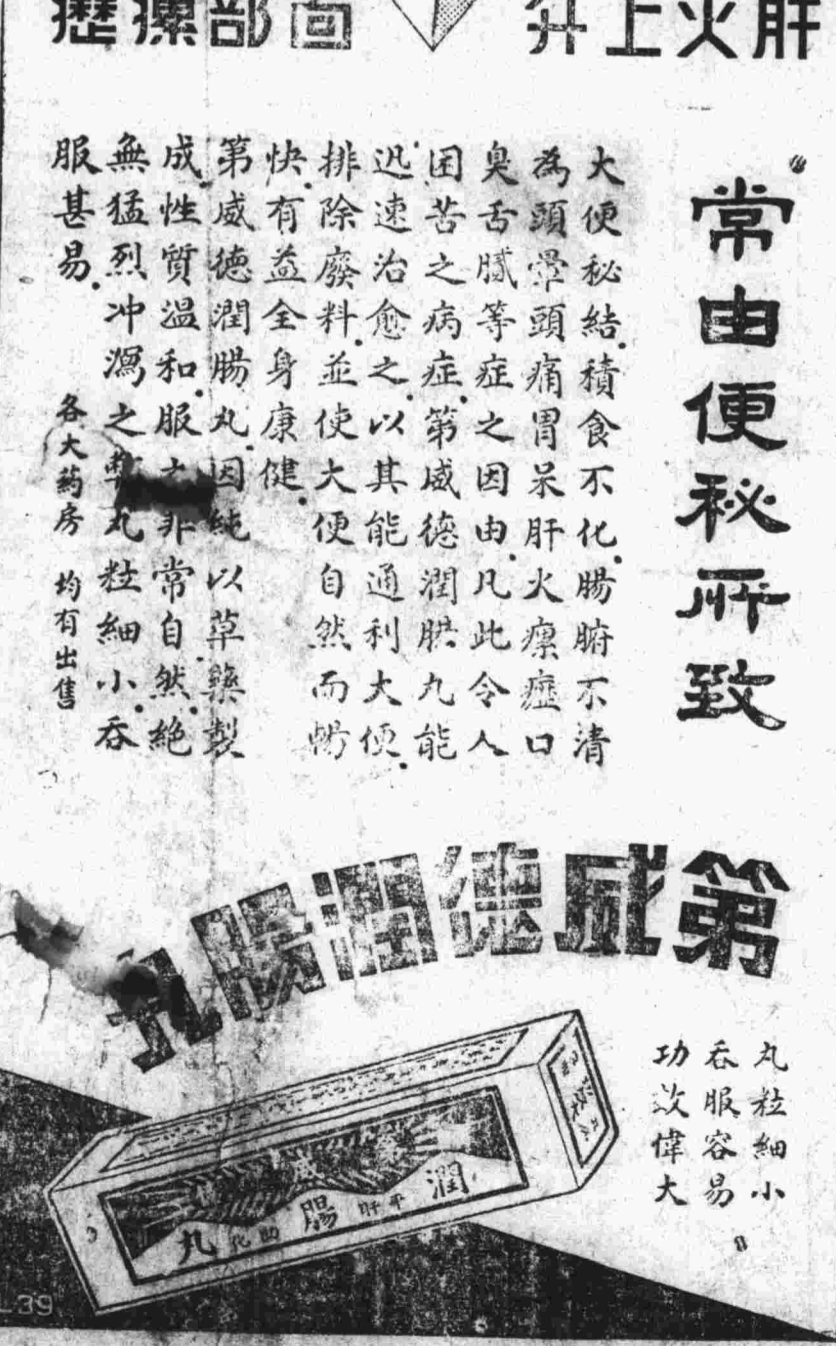 肝火上升
面部瘰癧
常由便秘所致
大便秘結.積食不化.腸腑不清
為頭暈頭痛胃呆肝火瘰癧口
臭舌膩等症之因由.凡此令人
困苦之病症.第威德潤腸丸能
迅速治愈之.以其能通利大便.
排除廢料.並使大便自然而暢
快.有益全身康健.
第威德潤腸丸.因純以草藥製
成.性質溫和.服之非常自然.絕
無猛烈冲瀉之弊.丸粒細小.吞
服甚易.
各大葯房 均有出售
第威德潤腸丸
丸粒細小
吞服容易
功效偉大
潤腸丸
平肝
助化
L39